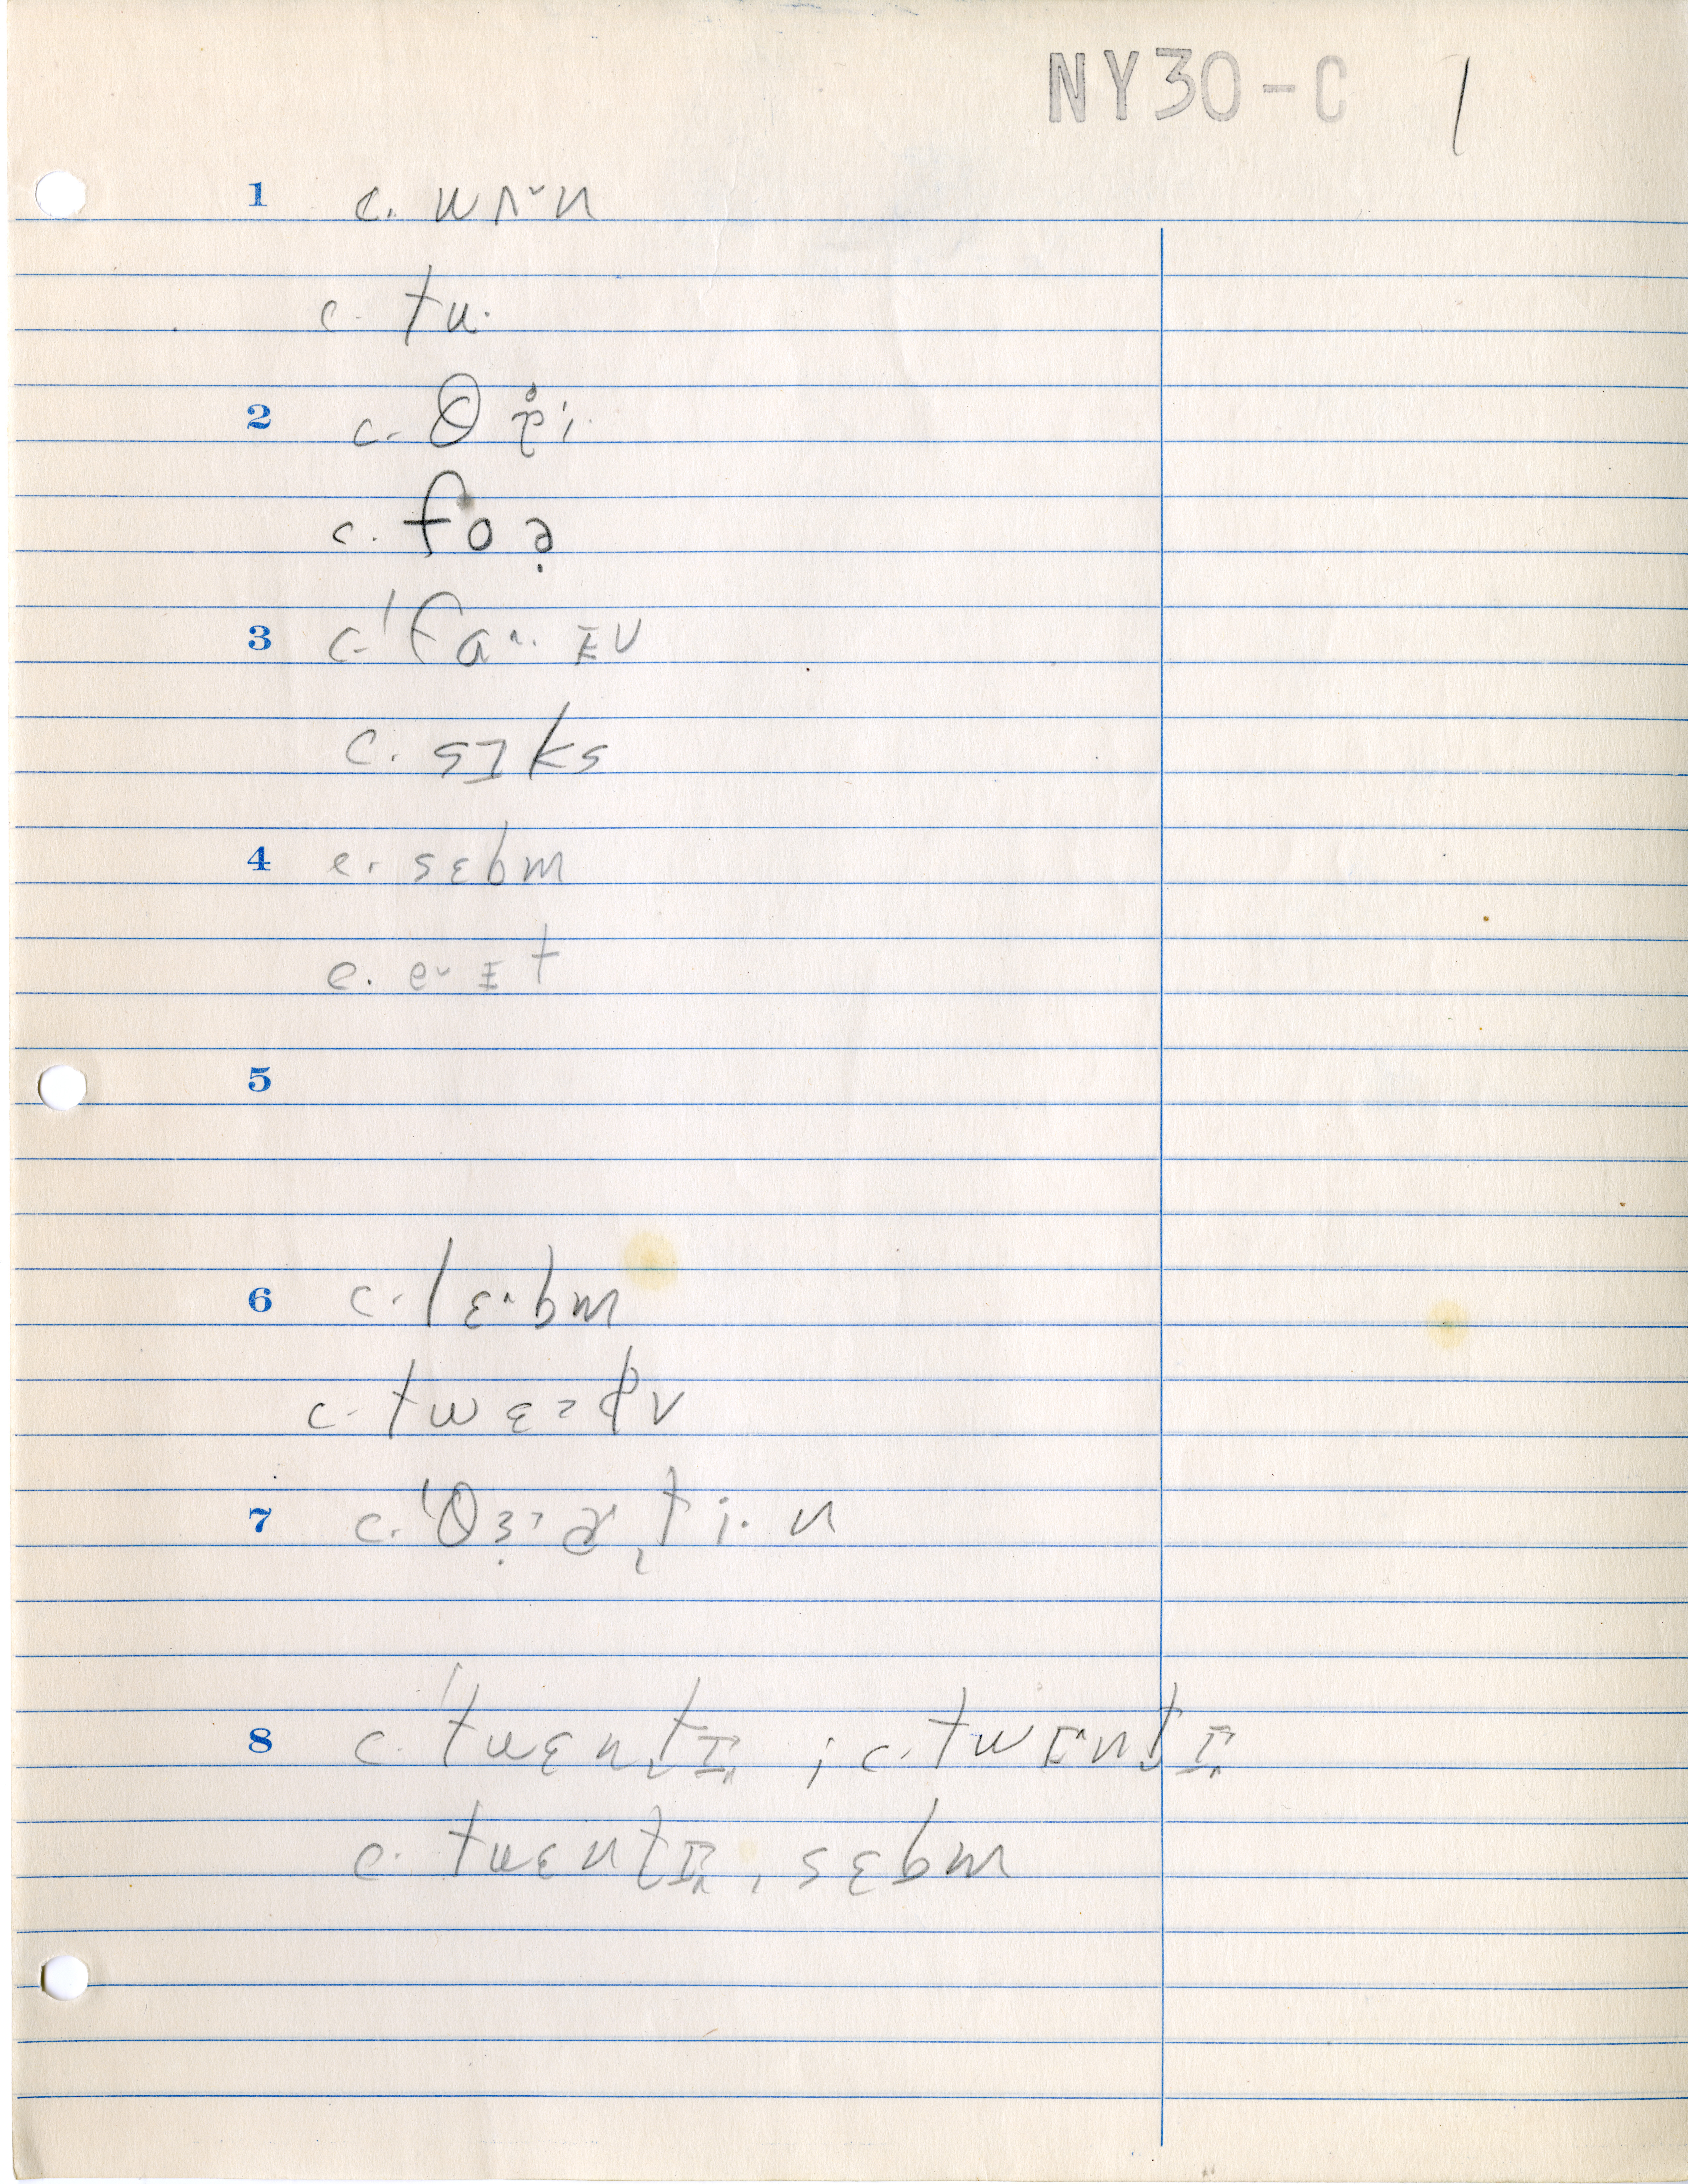 NY30-C 1
1 c. wʌ˞n
c. tu·
2 c. θɽ̊i·
c. foə̣
3 c. ˈfaˑ· ɪv
c. sɪks
4 c. sɛbm
c. e˅ɪt
5
6 c. lɛ˄bm
c. twɛ
7 c. ˈθɜ˒ɚˌti·n
8 c. ˈtwɛnt̬ɪ˄ ; c. twɪ˄nt̬ɪ˄
c. twɛnt̬ɪ˄ ˌsɛbm